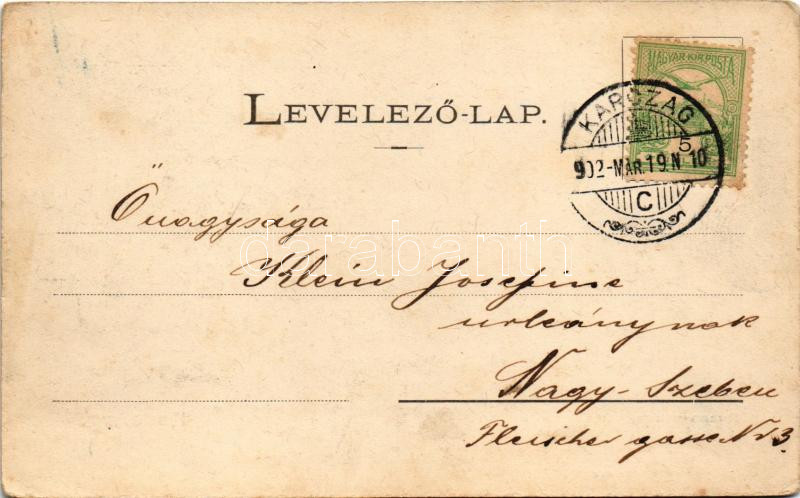 MAGYAR·KIR·POSTA
LEVELEZŐ-LAP.
KARCZAG
5
902-MÁR.19 N 10
C
Őnagysága
darabanth
Klein Josefine
urleánynak
Nagy-Szeben
Fleischer gasse Nr 3.